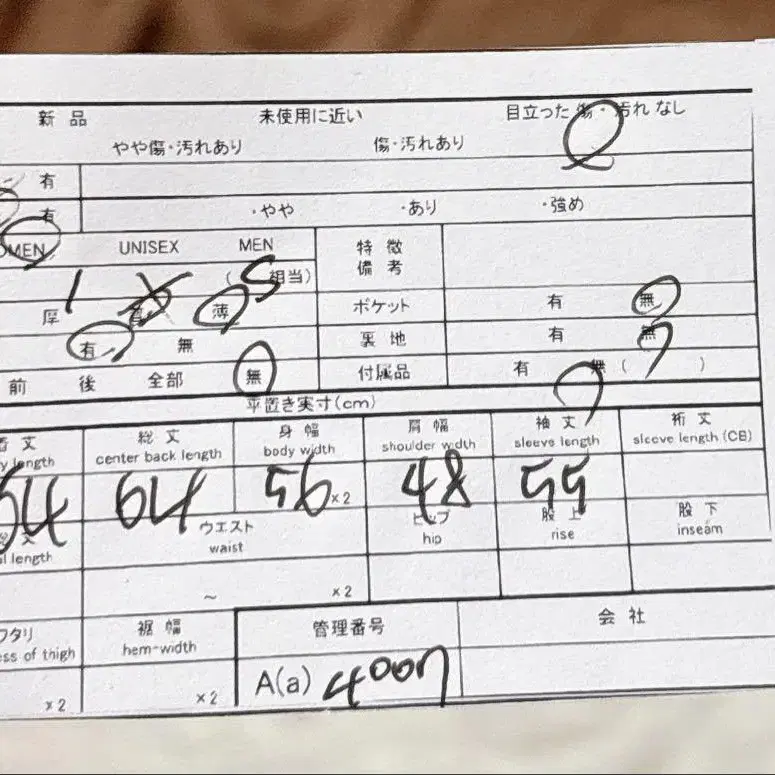 新品 未使用に近い 目立った傷・汚れなし
やや傷・汚れあり 傷・汚れあり
有
有 ・やや ・あり ・強め
OMEN UNISEX MEN 特徴
備考
( S 相当)
厚 薄 ポケット 有 無
有 無 裏地 有 無
前 後 全部 無 付属品 有 無 ( )
平置き実寸(cm)
着丈 総丈 身幅 肩幅 袖丈 裄丈
y length center back length body width shoulder wdth sleeve length sleeve length (CB)
64 64 56 ×2 48 55
丈 ウエスト ヒップ 股上 股下
l length waist hip rise inseam
～ ×2
ワタリ 裾幅 管理番号 会社
ss of thigh hem-width
×2 ×2 A(a) 4007